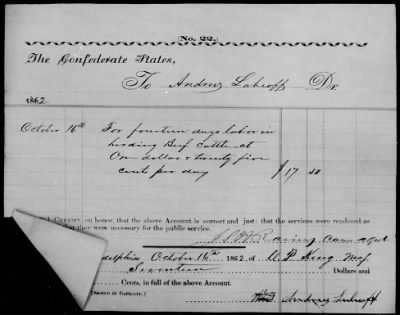 (No. 22.)
The Confederate States,
To Andrew Labroff Dr.
1862
October 16th For fourteen days labor in
herding Beef cattle at
One dollar & twenty five
cents per day $17 50
I CERTIFY, on honor, that the above Account is correct and just; that the services were rendered as
they were necessary for the public service.
October 16th 1862, of W. P. King
Seventeen Dollars and
Cents, in full of the above Account.
[SIGNED IN DUPLICATE.] Andrew Labroff